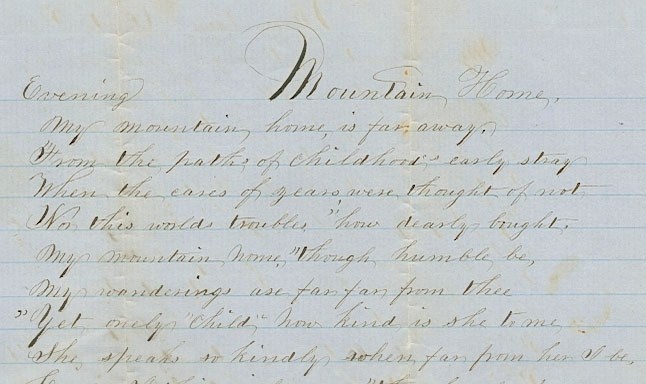 Evening Mountain Home,
My mountain home, is far away,
From the paths of childhood's early stray
When the cares of years were thought of not
Nor this worlds troubles, "how dearly bought,
My mountain home, "though humble be,
My wanderings are far far from thee
"Yet onely "Child," how kind is she to me
She speaks so kindly when far from her I be,